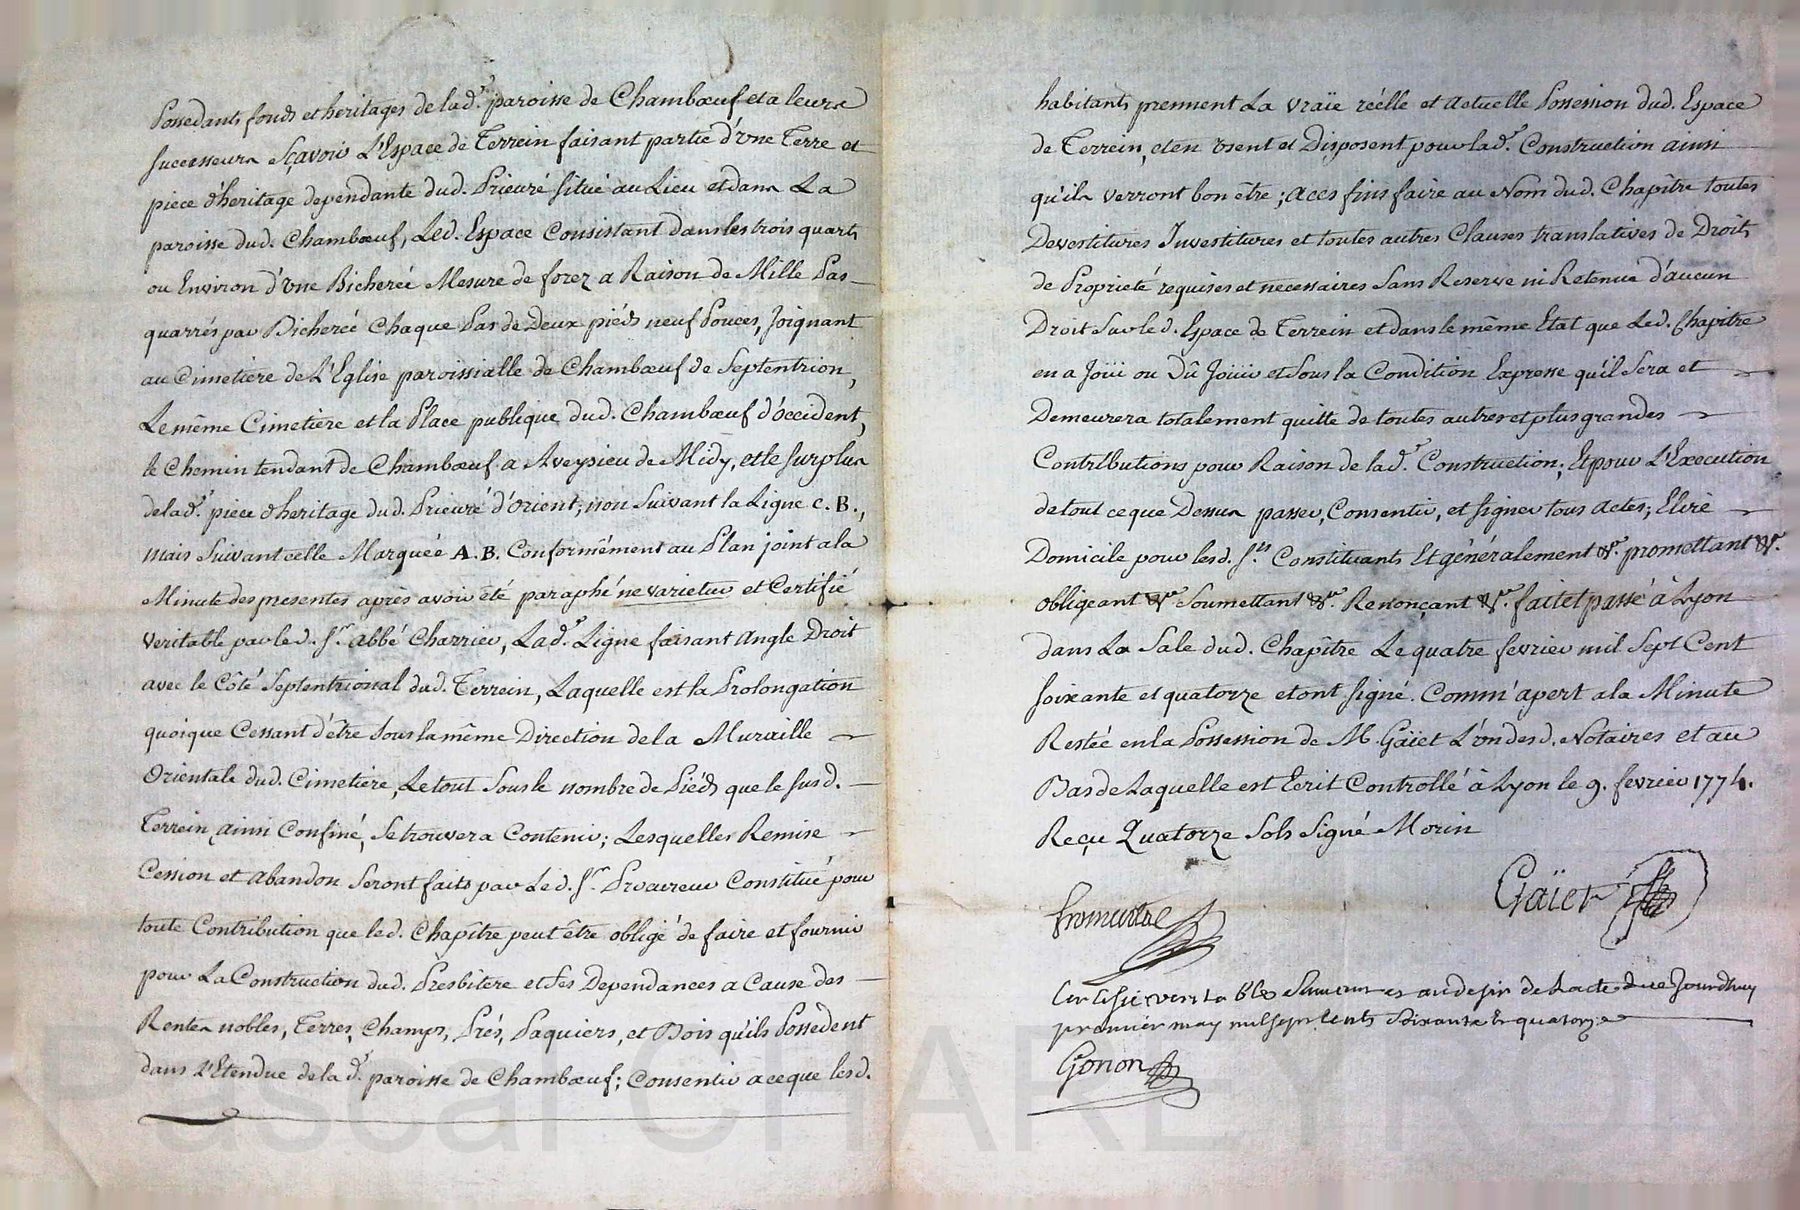 Possedants fonds et heritages de lad.e paroisse de Chambœuf et a leurs
successeurs Sçavoir L'Espace de Terrein faisant partie d'une Terre et
piece d'heritage dependante dud. Prieuré situé au Lieu et dans La
paroisse dud. Chambœuf, Led. Espace Consistant dans les trois quarts
ou Environ d'une Bicherée Mesure de forez a Raison de Mille Pas
quarrés par Bicherée Chaque Pas de Deux pieds neuf Pouces, Joignant
au Cimetiere de L'Eglise paroissialle de Chambœuf de Septentrion,
Le même Cimetiere et la Place publique dud. Chambœuf d'occident,
le Chemin tendant de Chambœuf a Aveysieu de Midy, et le surplus
de lad.e piece d'heritage dud. Prieuré d'orient, non Suivant la Ligne C. B.,
mais Suivant celle Marquée A. B. Conformément au Plan joint a la
Minute des presentes après avoir été paraphé ne varietur et Certifié
veritable par led. Sr. abbé Charrier, Lad.e Ligne faisant Angle Droit
avec le Côté Septentrional dud. Terrein, Laquelle est la Prolongation
quoique Cessant d'être Sous la même Direction de la Muraille
Orientale dud. Cimetiere, Le tout Sous le nombre de Pieds que le susd.
Terrein ainsi Confiné, Se trouvera Contenir; Lesquelles Remise
Cession et abandon Seront faits par Led. Sr. Procureur Constitué pour
toute Contribution que led. Chapître peut être obligé de faire et fournir
pour La Construction dud. Presbitere et Ses Dependances a Cause des
Rentes nobles, Terres, Champs, Prés, Paquiers, et Bois qu'ils Possedent
dans l'Etendue de la d.e paroisse de Chambœuf; Consentir a ce que lesd.
habitants prennent La vraïe réelle et actuelle Possession dud. Espace
de Terrein, et en usent et Disposent pour lad.e Construction ainsi
qu'ils verront bon être; a ces fins faire au Nom dud. Chapître toutes
Devestitures Investitures et toutes autres Clauses translatives de Droits
de Proprieté requises et necessaires Sans Reserve ni Retenue d'aucun
Droit Sur led. Espace de Terrein et dans le même Etat que Led. Chapitre
en a Joüi ou Dû Joüir et Sous la Condition Expresse qu'il Sera et
Demeurera totalement quitte de toutes autres et plus grandes
Contributions pour Raison de lad.e Construction; Et pour L'Execution
de tout ce que Dessus passer, Consentir, et signer tous actes; Elire
Domicile pour lesd. Srs Constituants Et généralement &c. promettant &c.
obligeant &c. Soumettant &c. Renonçant &c. fait et passé à Lyon
dans La Sale dud. Chapître Le quatre fevrier mil Sept Cent
soixante et quatorze et ont signé. Comm'apert a la Minute
Restée en la Possession de M. Gaïet L'un desd. Notaires et au
Bas de Laquelle est Ecrit Controllé à Lyon le 9. fevrier 1774.
Reçu Quatorze Sols Signé Morin
Gaïet
fromental
Certifié veritable au desir de Lacte de ce Jourdhuy
premier may mil sept cents Soixante et quatorze
Gonon
Pascal CHAREYRON